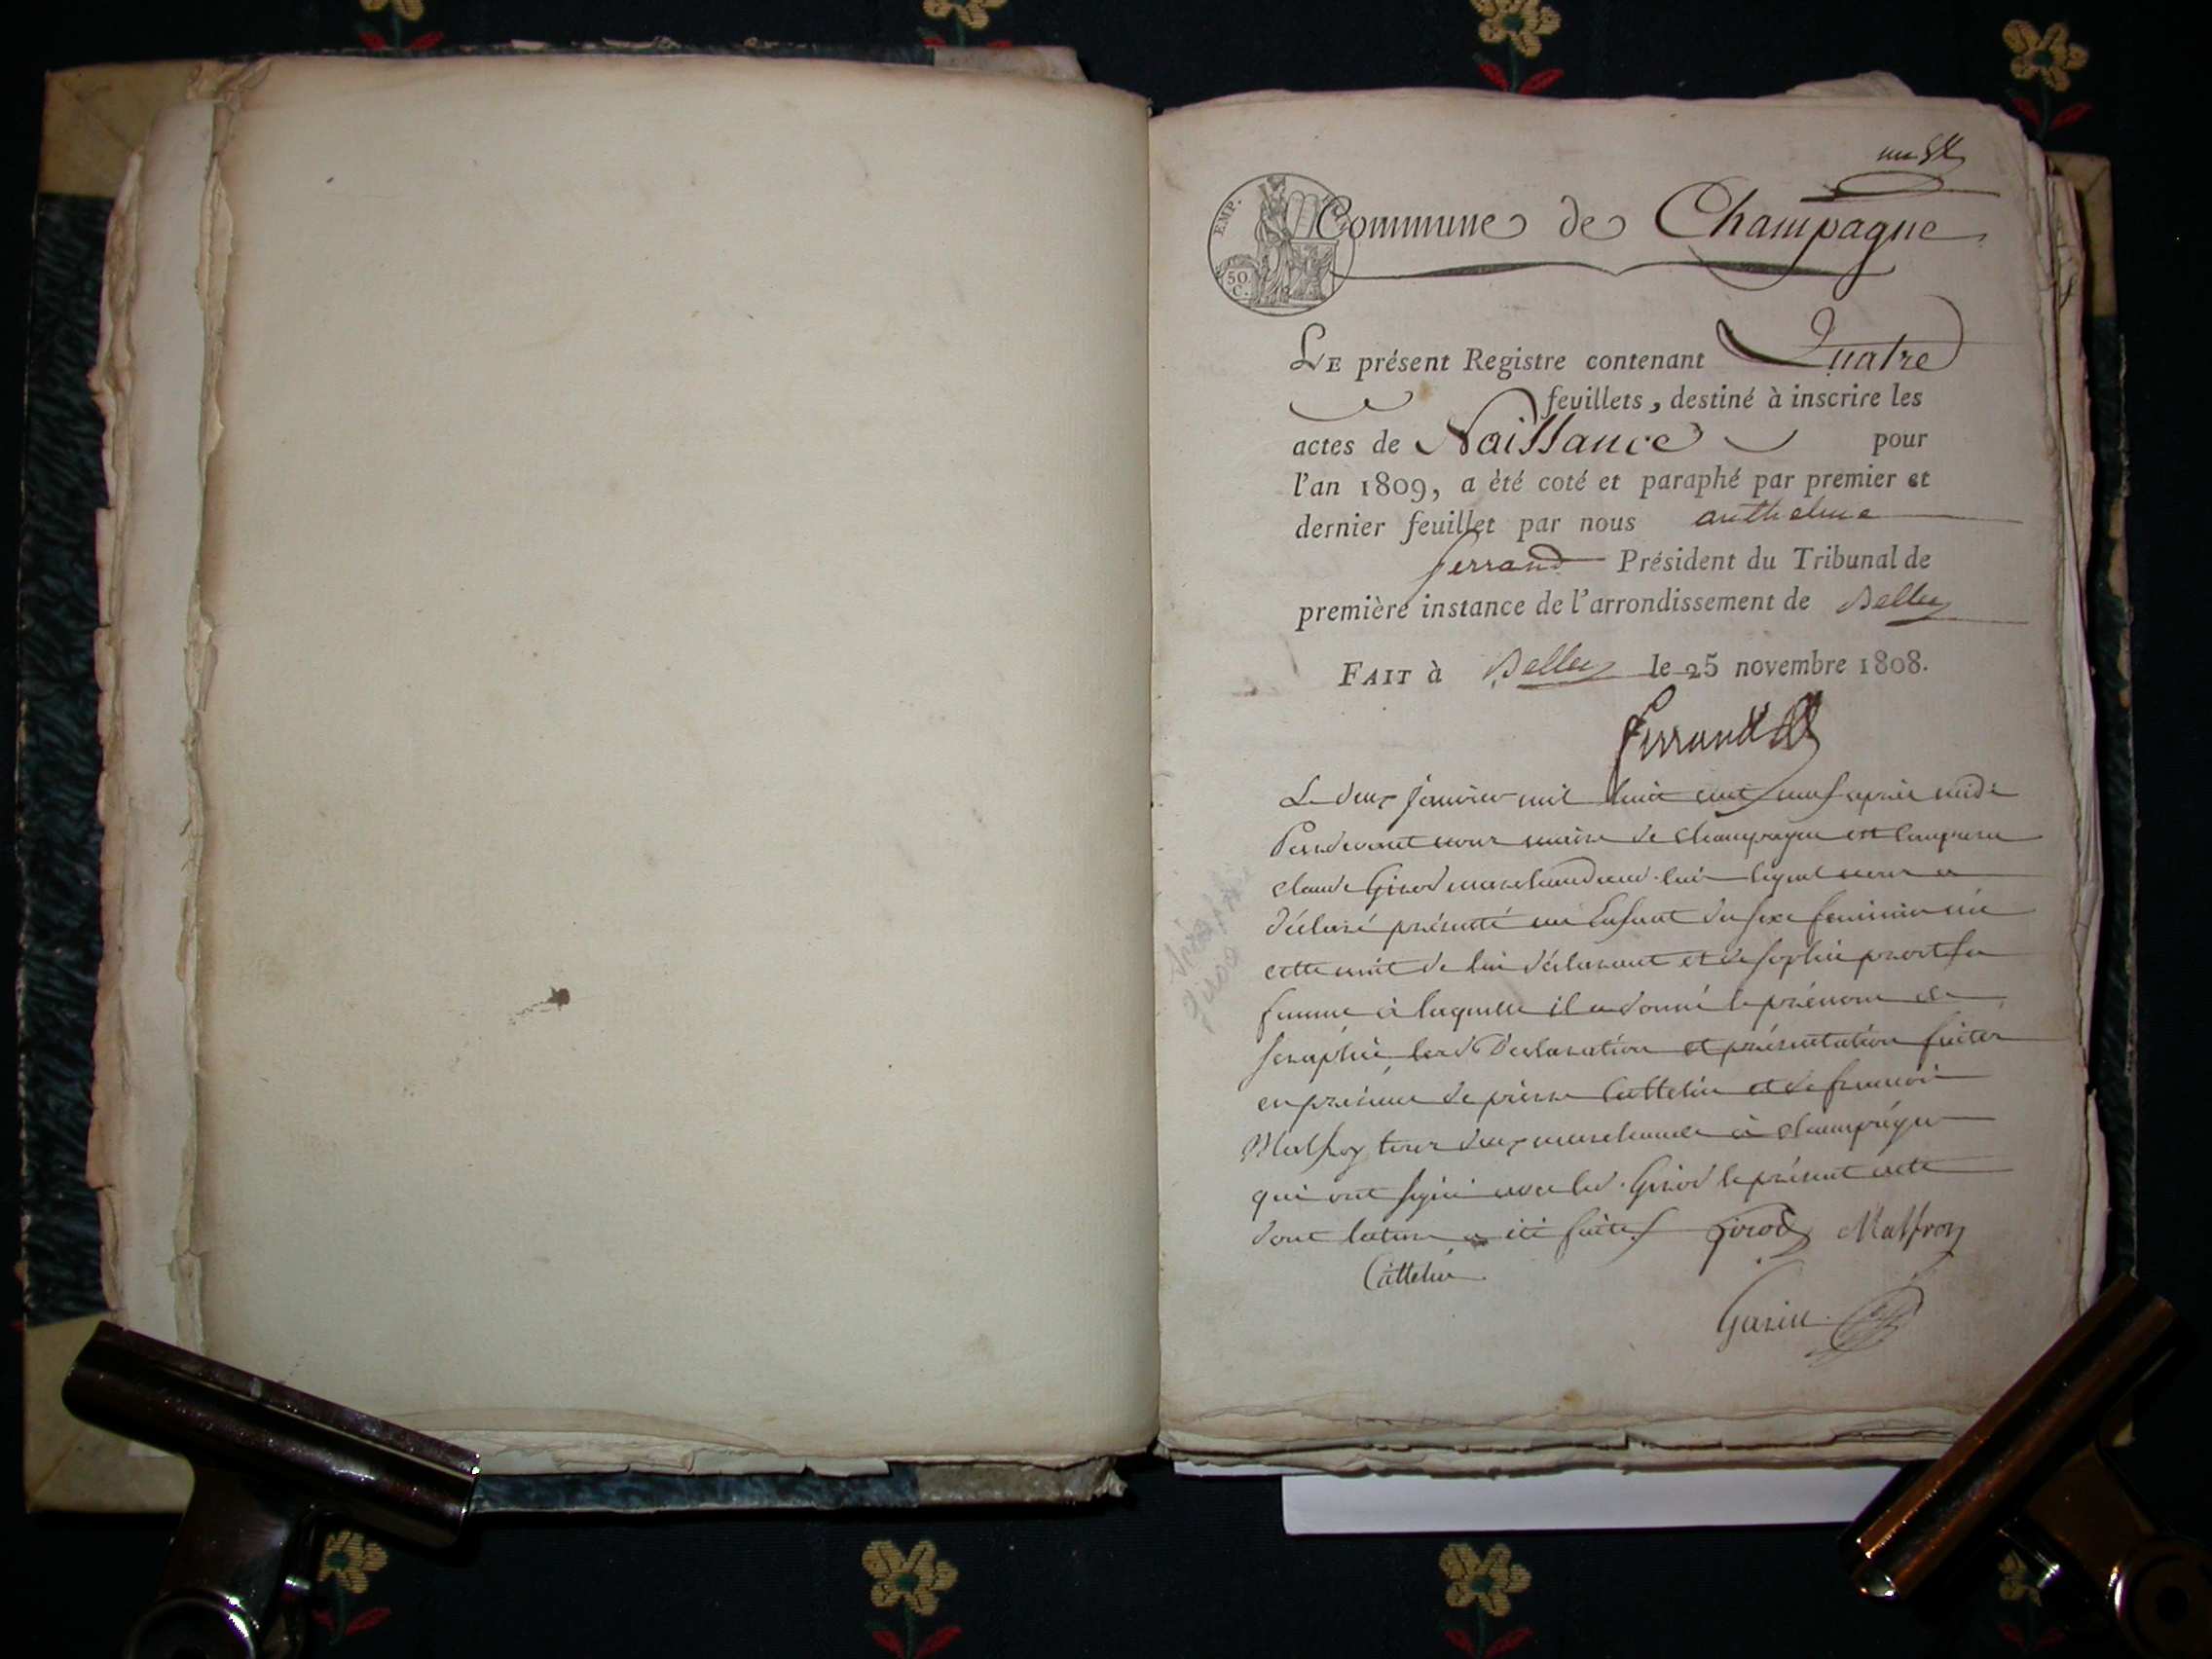 EMP.
50
C.
Commune de Champagne
LE présent Registre contenant Quatre
feuillets, destiné à inscrire les
actes de Naissance pour
l'an 1809, a été coté et paraphé par premier et
dernier feuillet par nous anthelme
ferrand Président du Tribunal de
première instance de l'arrondissement de Belley
FAIT à Belley le 25 novembre 1808.
Ferrand
Le deux janvier mil huit cent neuf après midi
Pardevant nous maire de Champagne est comparu
claude Girod marchand aud. lieu lequel nous a
déclaré présenté un Enfant du sexe feminin née
cette nuit de lui déclarant et de sophie sa
femme à laquelle il a donné le prénom de
seraphie lesd. Declaration et présentation faites
en présence de pierre Cattelin et de francois
Malfroy tous deux marchands à champagne
qui ont signé avec led. Girod le présent acte
dont lecture a été faite Girod Malfroy
Cattelin
Garin
Séraphie
girod